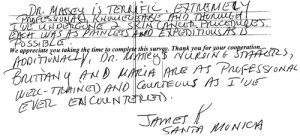 DR. MASSEY IS TERRIFIC, EXTREMELY
PROFESSIONAL, KNOWLEDGEABLE AND THOROUGH.
I'VE UNDERGONE 2 SKIN CANCER PROCEDURES
EACH WAS AS PAINLESS AND EXPEDITIOUS AS IS
POSSIBLE.
We appreciate you taking the time to complete this survey. Thank you for your cooperation...
ADDITIONALLY, DR. MASSEY'S NURSING STAFFERS,
BRITTANY AND MARIA ARE AS PROFESSIONAL
WELL-TRAINED AND COURTEOUS AS I'VE
EVER ENCOUNTERED.
JAMES K
SANTA MONICA